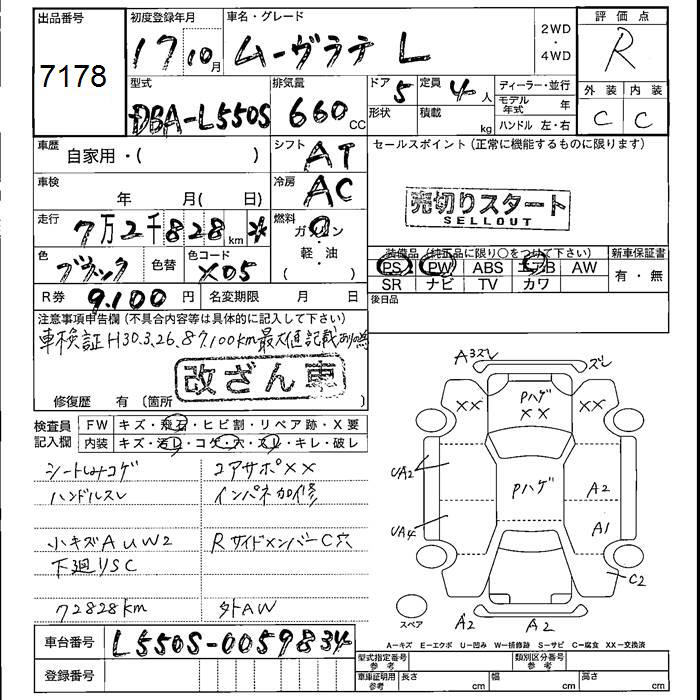 出品番号
7178
初度登録年月
17 10 月
車名・グレード
ムーヴラテ L
2WD
・
4WD
評価点
R
型式
DBA-L550S
排気量
660 cc
ドア 5
形状
定員 4 人
積載 kg
ディーラー・並行
モデル年式 年
ハンドル 左・右
外装 内装
C C
車歴
自家用・( )
シフト
AT
セールスポイント(正常に機能するものに限ります)
車検
年 月( 日)
冷房
AC
売切りスタート
SELLOUT
走行
7万2千828 km *
燃料
ガソリン
・
軽・油
( )
色
ブラック
色替
色コード
X05
装備品(純正品に限り○をつけて下さい)
PS PW ABS エアB AW
SR ナビ TV カワ
新車保証書
有・無
R券 9.100 円
名変期限 月 日
後日品
注意事項申告欄(不具合内容等は具体的に記入して下さい)
車検証H30.3.26.87,100km最大値記載ありの為
改ざん車
修復歴 有(箇所
検査員記入欄
FW キズ・飛石・ヒビ割・リペア跡・X要
内装 キズ・汚レ・コゲ・穴・スレ・キレ・破レ
シートしみコゲ
コアサポXX
ハンドルスレ
インパネ加修
小キズAUW2
RサイドメンバーC穴
下廻りSC
72828km
外AW
A3スレ
ズレ
XX
XX
Pハゲ
XX
UA2
Pハゲ
A2
UA4
A1
C2
スペア
A2
A2
A=キズ E=エクボ U=凹み W=補修跡 S=サビ C=腐食 XX=交換済
車台番号
L550S-0059834
登録番号
型式指定番号
参考
類別区分番号
参考
車庫証明用
参考
長さ cm
幅 cm
高さ cm